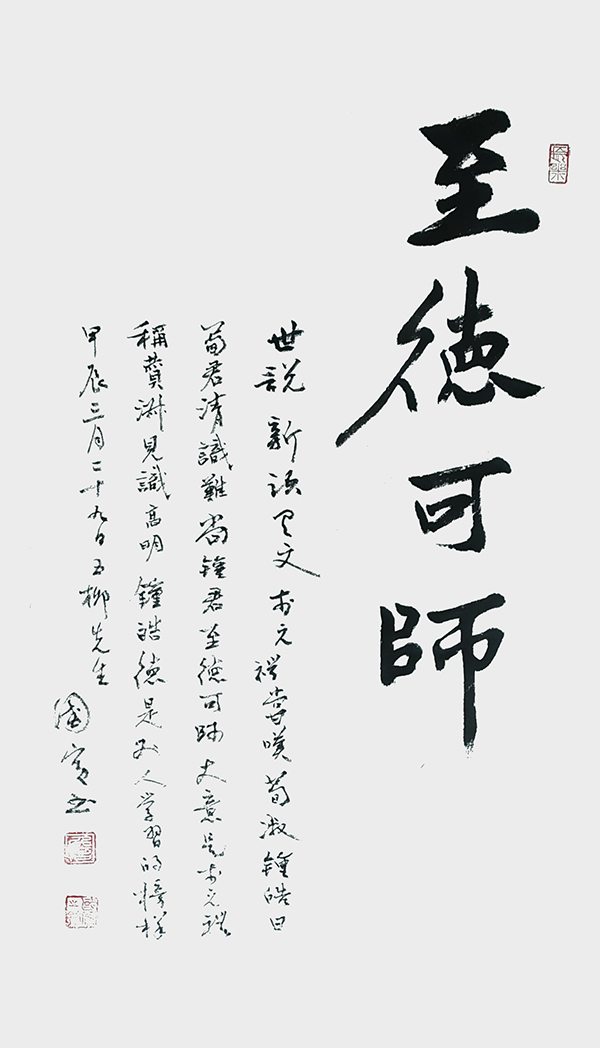 至徳可師
世説新語里文李元禮嘗嘆荀淑鍾皓曰
荀君清識難尚鍾君至徳可師大意是李元禮
稱贊淑見識高明鍾皓徳是人学習的榜樣
甲辰三月二十九日五柳先生
國賓書
長樂